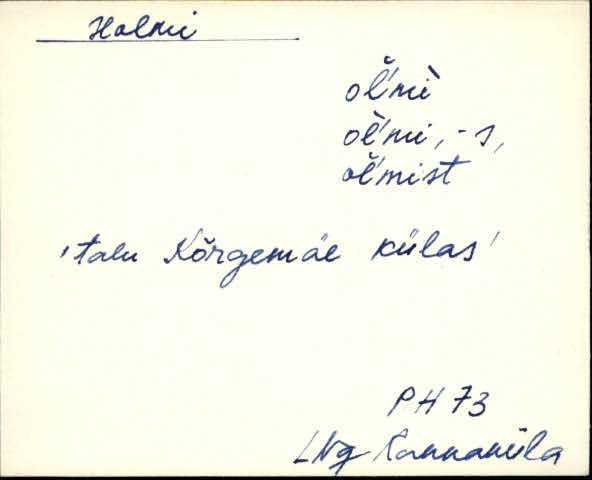 Holmi
oľ̆mì
oľ̆mi, -s,
oľ̆mist
'talu Kõrgemäe külas'
PH 73
LNg Kannaküla